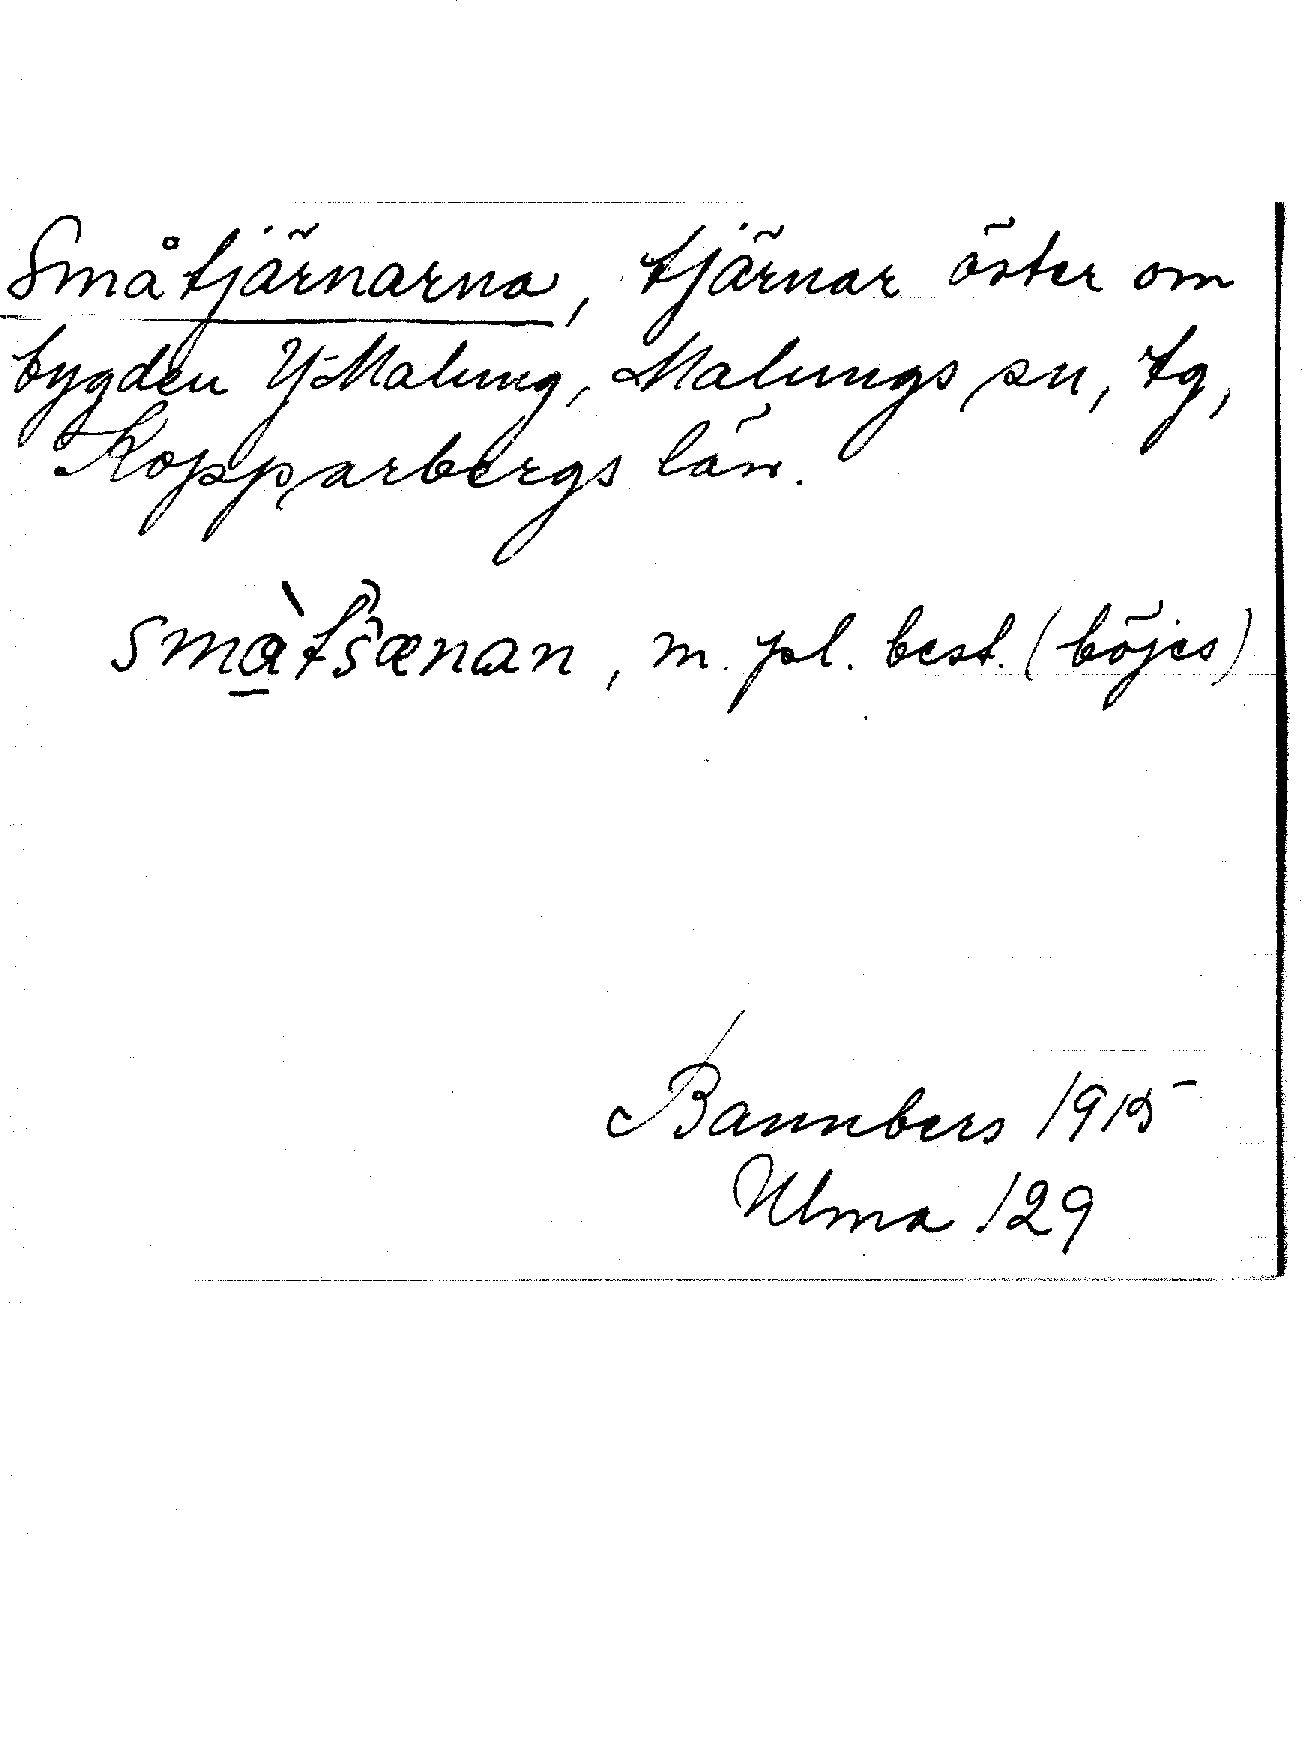 Småtjärnarna, tjärnar öster om
bygden Y-Malung, Malungs sn, tg,
Kopparbergs län.
smàtšænan, m. pl. best. (böjes)
Bannbers 1915
Ulma 129